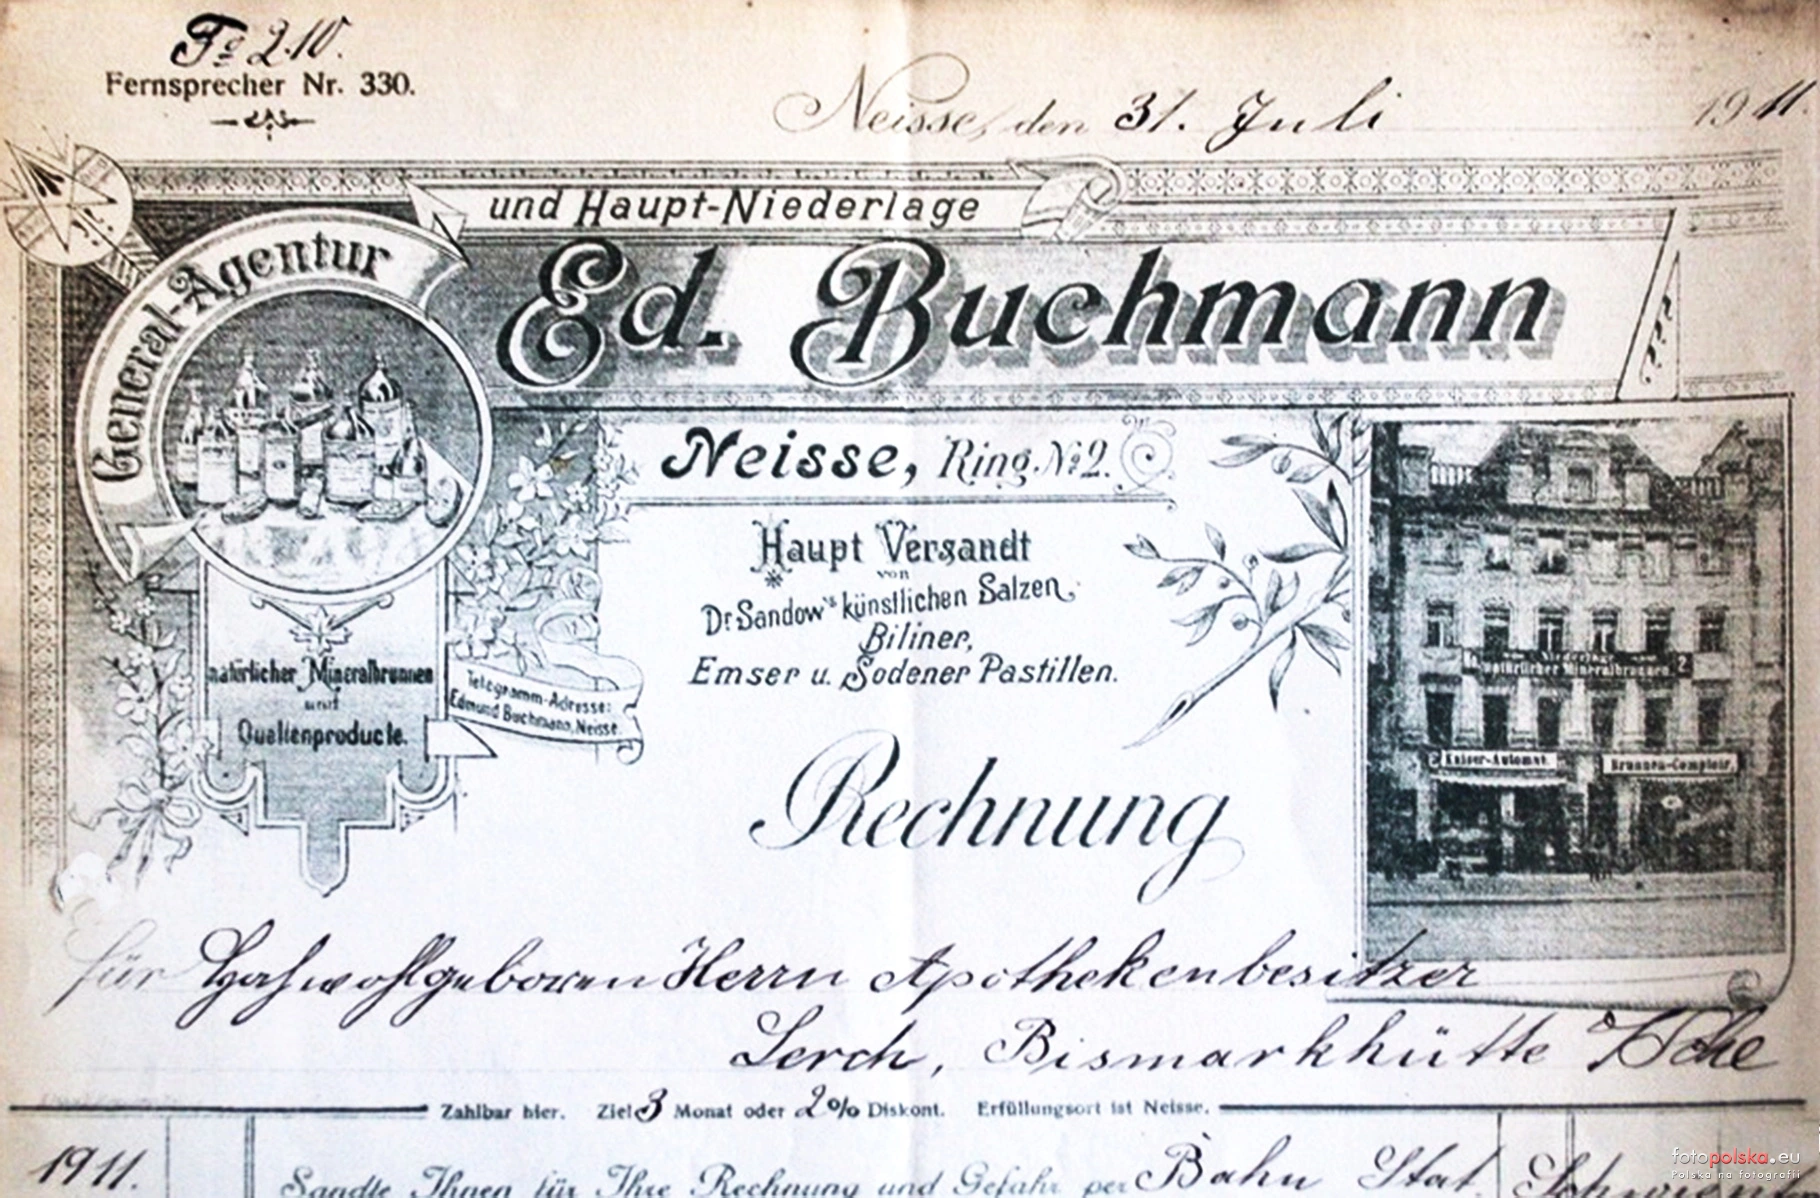 Fo 210.
Fernsprecher Nr. 330.
Neisse, den 31. Juli 1911.
General-Agentur
und Haupt-Niederlage
Ed. Buchmann
Neisse, Ring No 2.
Haupt Versandt
von
Dr Sandow's künstlichen Salzen,
Biliner,
Emser u. Sodener Pastillen.
natürlicher Mineralbrunnen
und
Quellenproducte.
Telegramm-Adresse:
Edmund Buchmann, Neisse.
Niederlage
natürlicher Mineralbrunnen 2
2 Kaiser-Automat.
Brunnen-Comptoir.
Rechnung
für Hochwohlgeboren Herrn Apothekenbesitzer
Lerch, Bismarkhütte
Zahlbar hier. Ziel 3 Monat oder 2% Diskont. Erfüllungsort ist Neisse.
1911.
Sandte Ihnen für Ihre Rechnung und Gefahr per Bahn Stat.
fotopolska.eu
Polska na fotografii